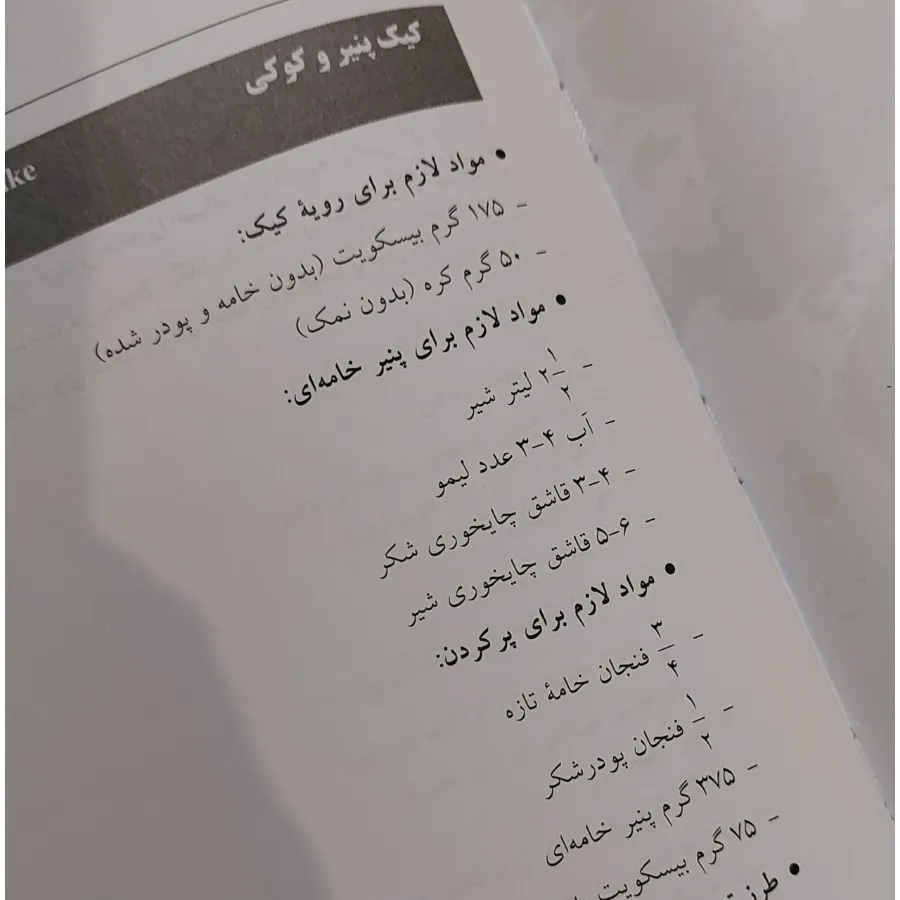 کیک پنیر و کوکی
ake
• مواد لازم برای رویهٔ کیک:
- ۱۷۵ گرم بیسکویت (بدون خامه و پودر شده)
- ۵۰ گرم کره (بدون نمک)
• مواد لازم برای پنیر خامه‌ای:
- ۲ ۱/۲ لیتر شیر
- آب ۴-۳ عدد لیمو
- ۴-۳ قاشق چایخوری شکر
- ۶-۵ قاشق چایخوری شیر
• مواد لازم برای پر کردن:
- ۳/۴ فنجان خامهٔ تازه
- ۱/۲ فنجان پودرشکر
- ۳۷۵ گرم پنیر خامه‌ای
- ۷۵ گرم بیسکویت
• طرز